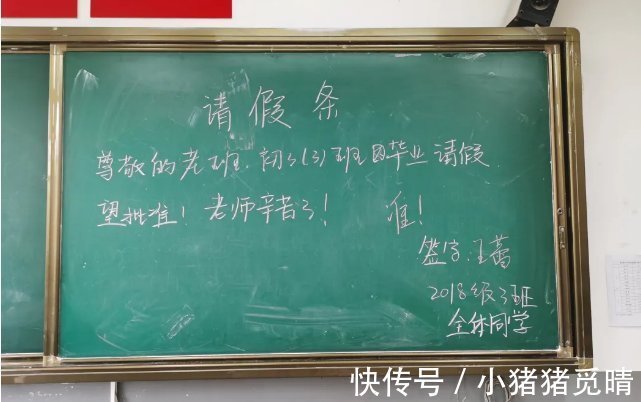 请假条
尊敬的老班，初3(3)班因毕业请假
望批准！老师辛苦了！ 准！
签字：王蕾
2018级3班
全体同学
快传号 / 小猪猪觅晴